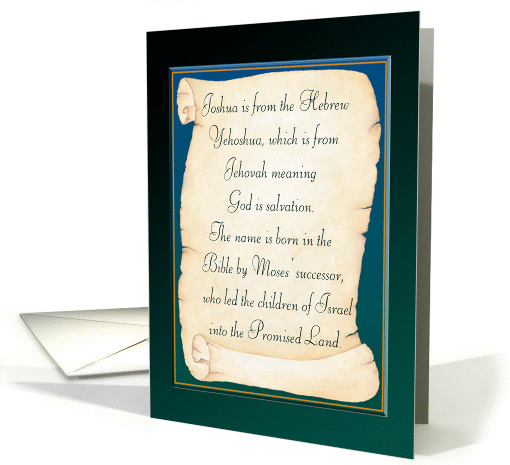 Joshua is from the Hebrew
Yehoshua, which is from
Jehovah meaning
God is salvation.
The name is born in the
Bible by Moses' successor,
who led the children of Israel
into the Promised Land.